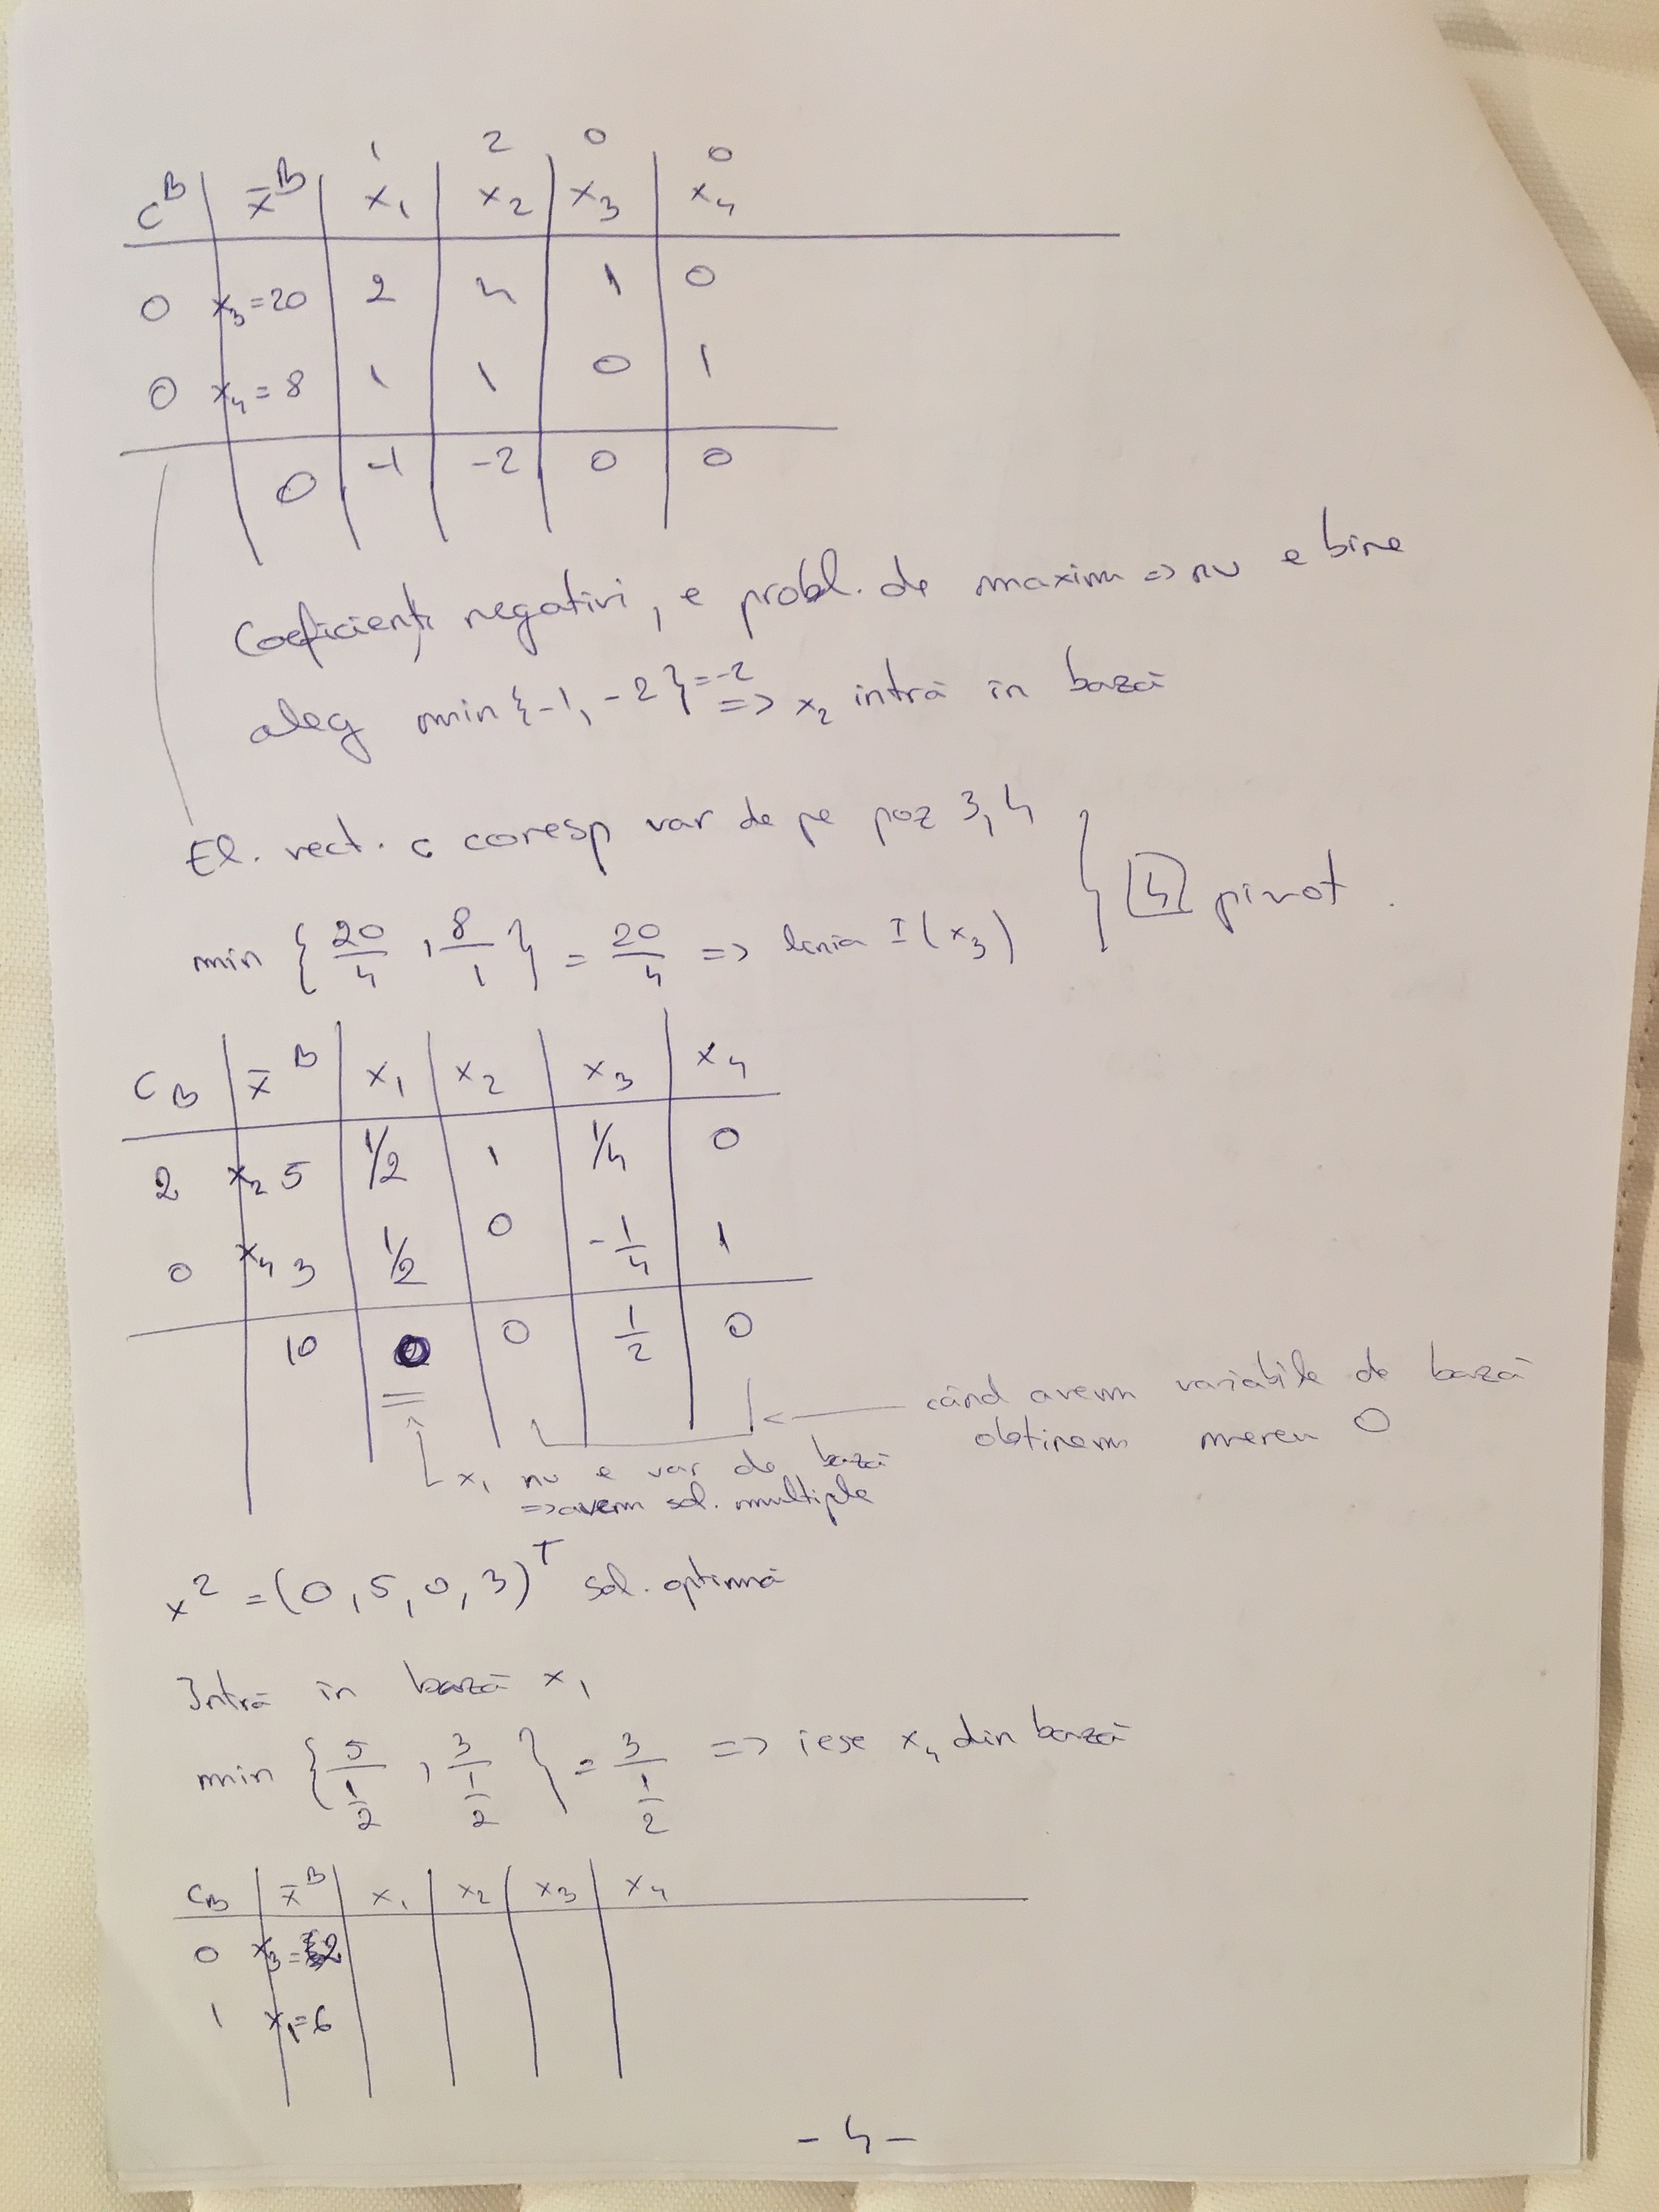 1 2 0 0
C^B | x̄^B | x₁ | x₂ | x₃ | x₄
0 | x₃=20 | 2 | 4 | 1 | 0
0 | x₄=8 | 1 | 1 | 0 | 1
0 | -1 | -2 | 0 | 0
Coeficienți negativi, e probl. de maxim => nu e bine
aleg min{-1, -2}=-2 => x₂ intră în bază
El. vect. c coresp var de pe poz 3,4
min {20/4, 8/1} = 20/4 => linia I (x₃) } [4] pivot.
C_B | x̄^B | x₁ | x₂ | x₃ | x₄
2 | x₂ 5 | 1/2 | 1 | 1/4 | 0
0 | x₄ 3 | 1/2 | 0 | -1/4 | 1
10 | 0 | 0 | 1/2 | 0
când avem variabile de bază
obținem mereu 0
x₁ nu e var de bază
=> avem sol. multiple
x² = (0,5,0,3)^T sol. optimă
Intră în bază x₁
min {5/(1/2), 3/(1/2)} = 3/(1/2) => iese x₄ din bază
C_B | x̄^B | x₁ | x₂ | x₃ | x₄
0 | x₃=2
1 | x₁=6
- 4 -